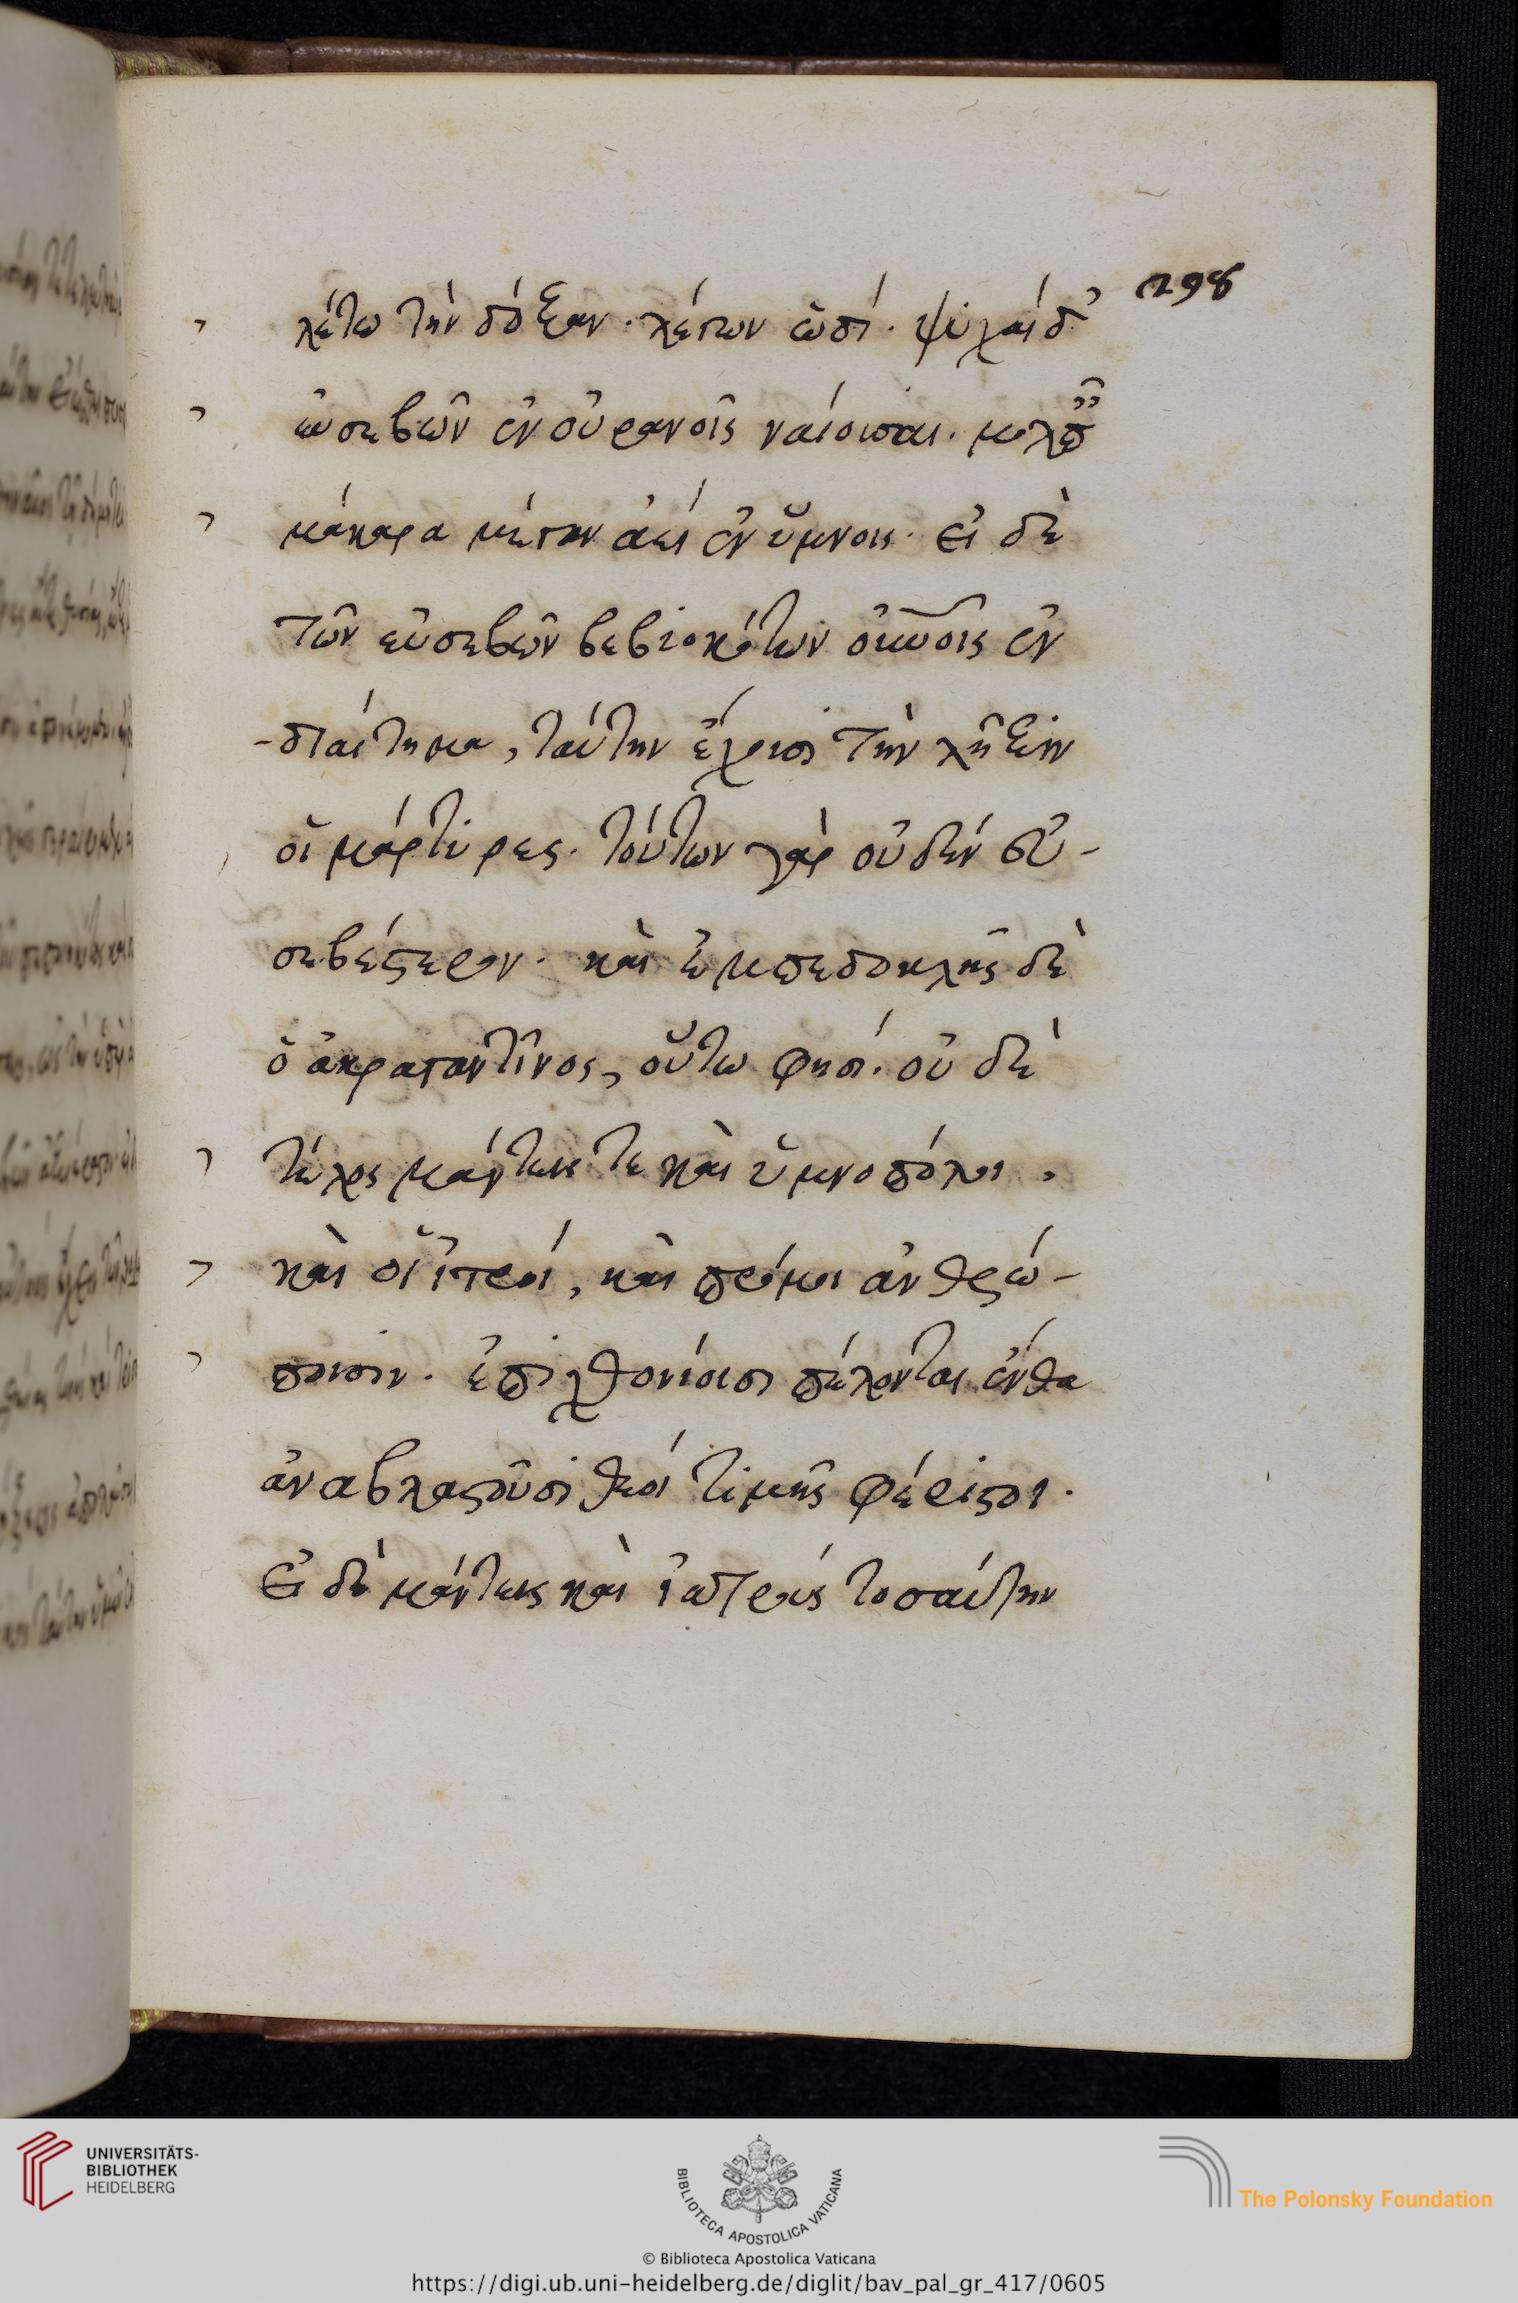 298
λέτω τὴν δόξαν. λέγων ὡδί. ψυχαί δ'
εὐσεβῶν ἐν οὐρανοῖς ναίοισαι. μολπ
μάκαρα μέγαν ἀεὶ ἐν ὕμνοις. εἰ δὲ
τῶν εὐσεβῶν βεβιοκότων ἐν
-διαίτημα, ταύτην ἔχουσι τὴν λῆξιν
οἱ μάρτυρες. τούτων γὰρ οὐδὲν εὐ-
σεβέστερον. καὶ ἐμπεδοκλῆς δὲ
ὁ ἀκραγαντῖνος, οὕτω φησί. οὐ δὲ
τέλος μάντεις τε καὶ ὑμνοπόλοι,
καὶ οἱ ἰτροί, καὶ πρόμοι ἀνθρώ-
ποισιν. ἐπιχθονίοισι πέλονται ἔνθα
ἀναβλαστοῦσι θεοί τιμῆς φέριστοι.
Εἰ δὲ μάντεις καὶ ἰατρούς τοσαύτην
UNIVERSITÄTS-
BIBLIOTHEK
HEIDELBERG
BIBLIOTECA APOSTOLICA VATICANA
The Polonsky Foundation
© Biblioteca Apostolica Vaticana
https://digi.ub.uni-heidelberg.de/diglit/bav_pal_gr_417/0605